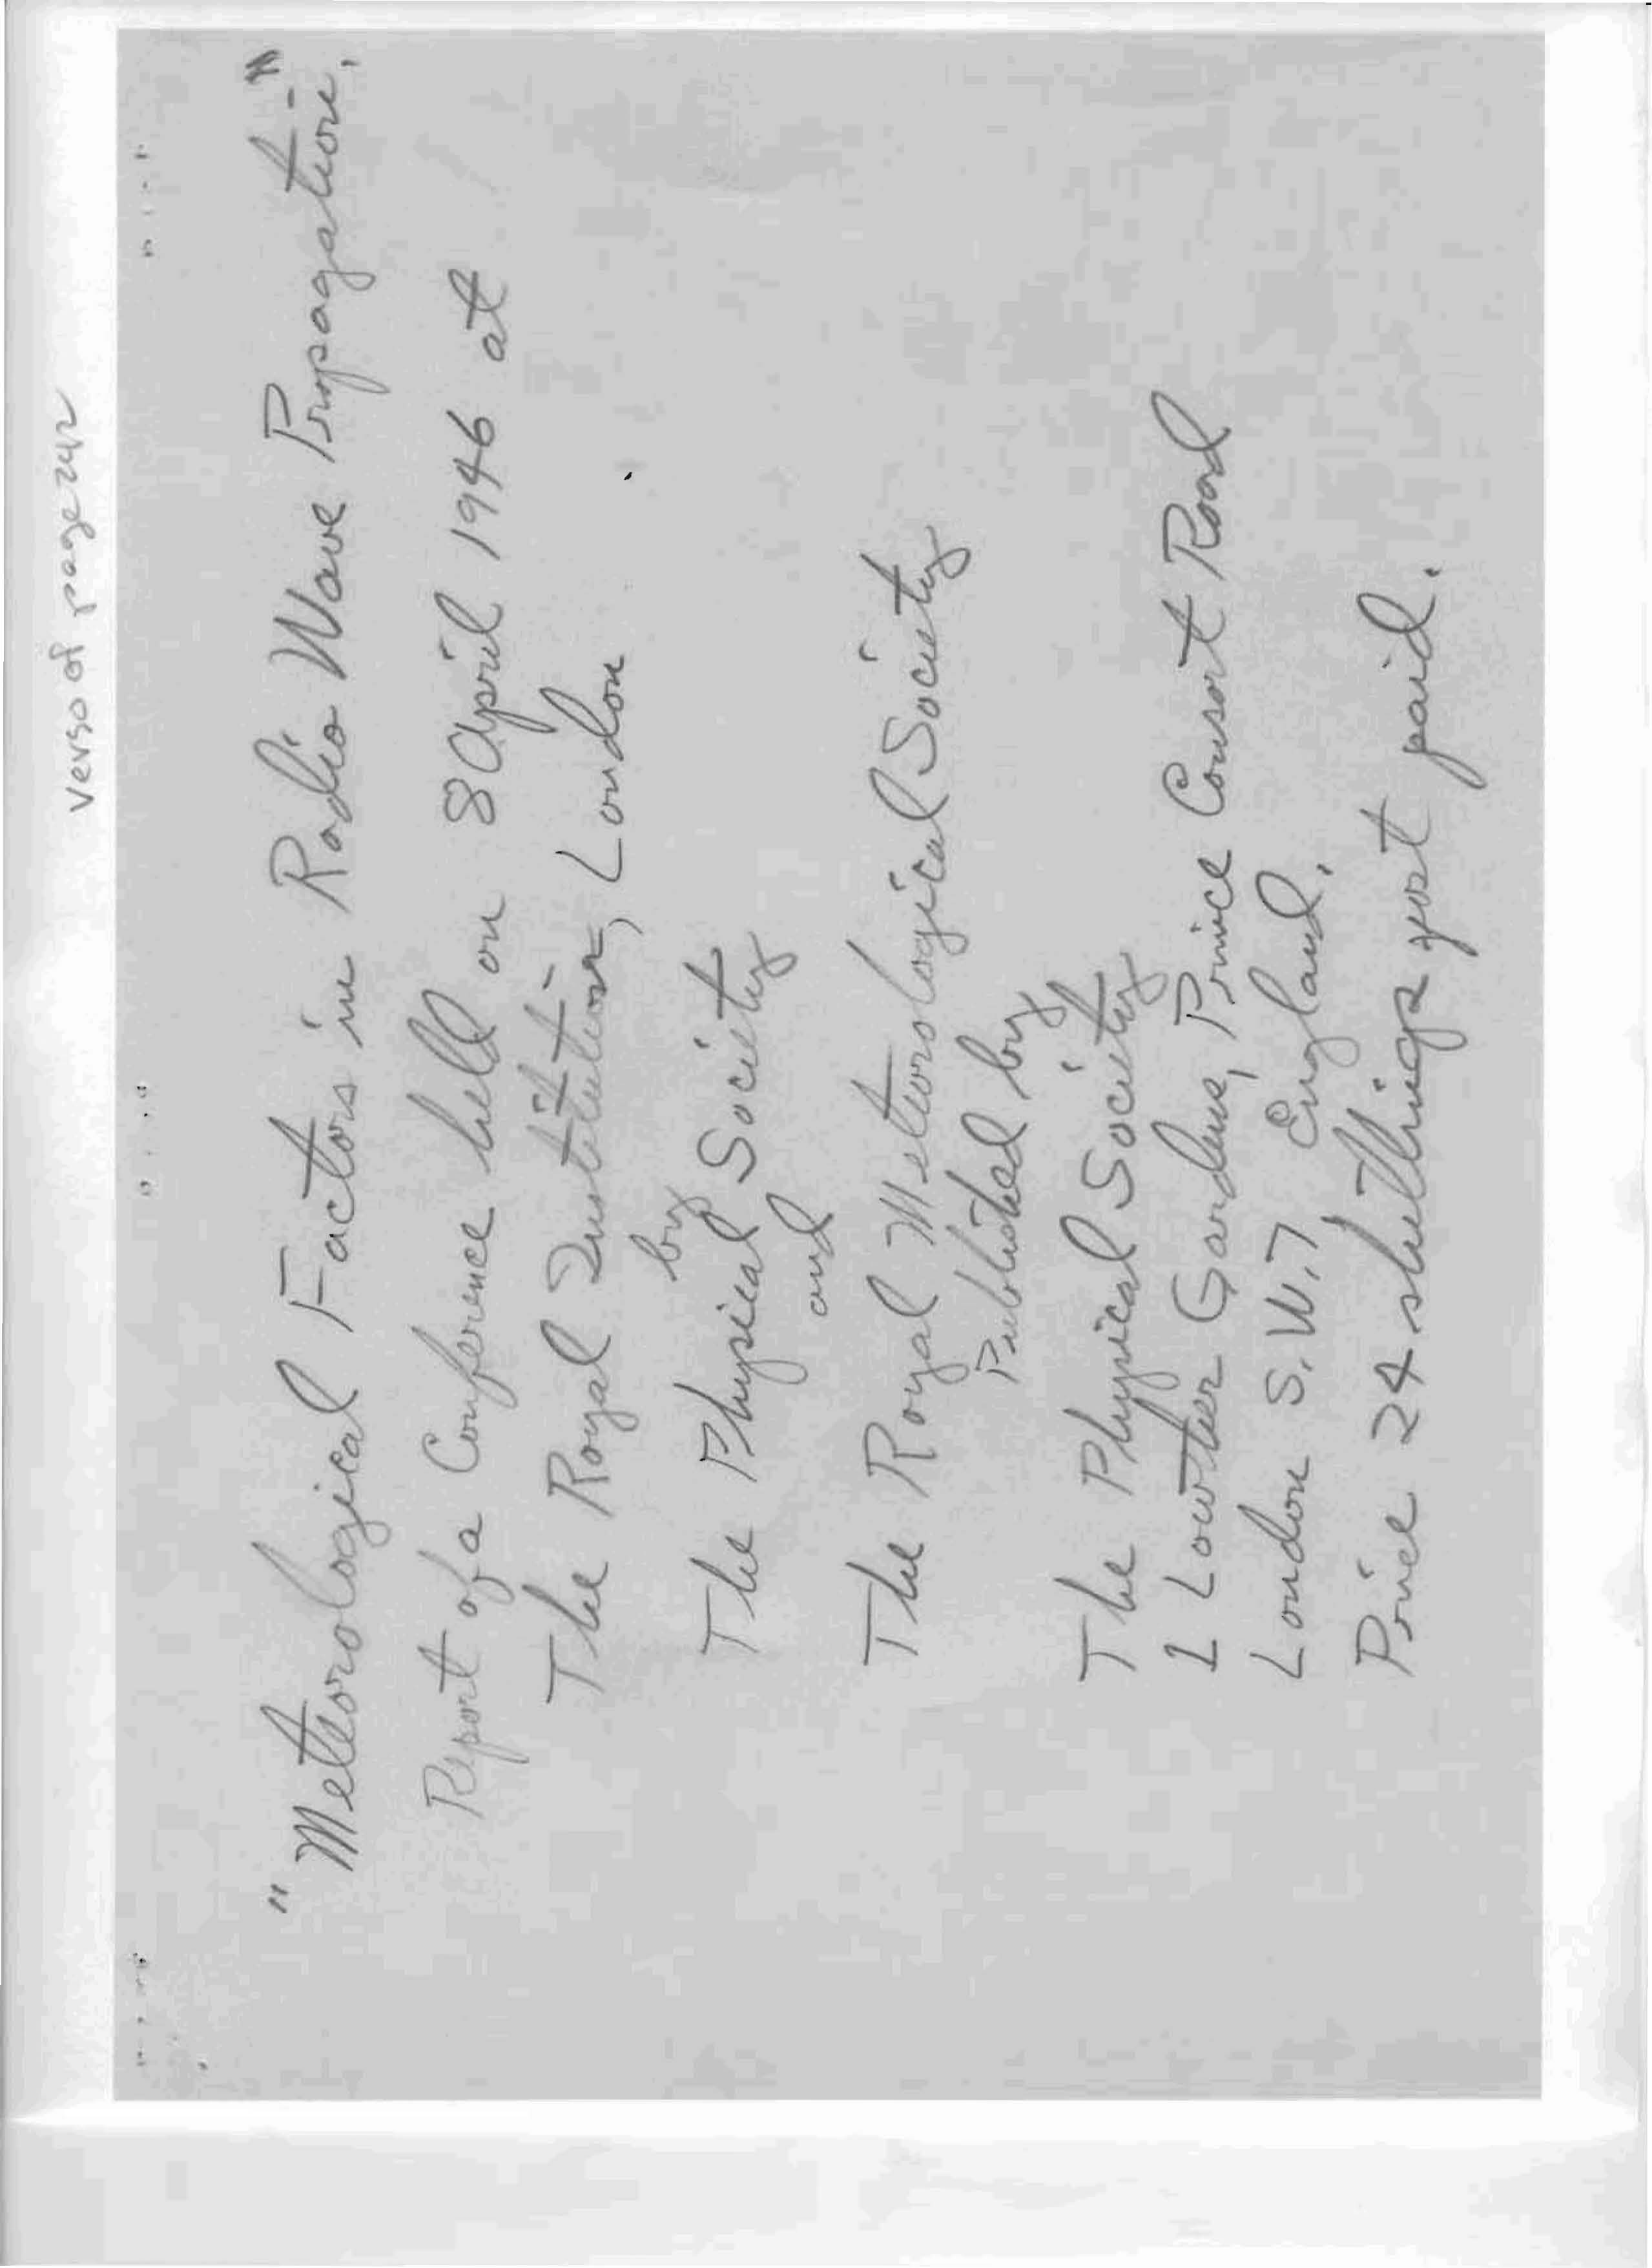 verso of page 242
"Meteorological Factors in Radio Wave Propagation."
Report of a Conference held on 8 April 1946 at
The Royal Institution, London
by
The Physical Society
and
The Royal Meteorological Society
Published by
The Physical Society
1 Lowther Gardens, Prince Consort Road
London S.W.7 England.
Price 24 shillings post paid.